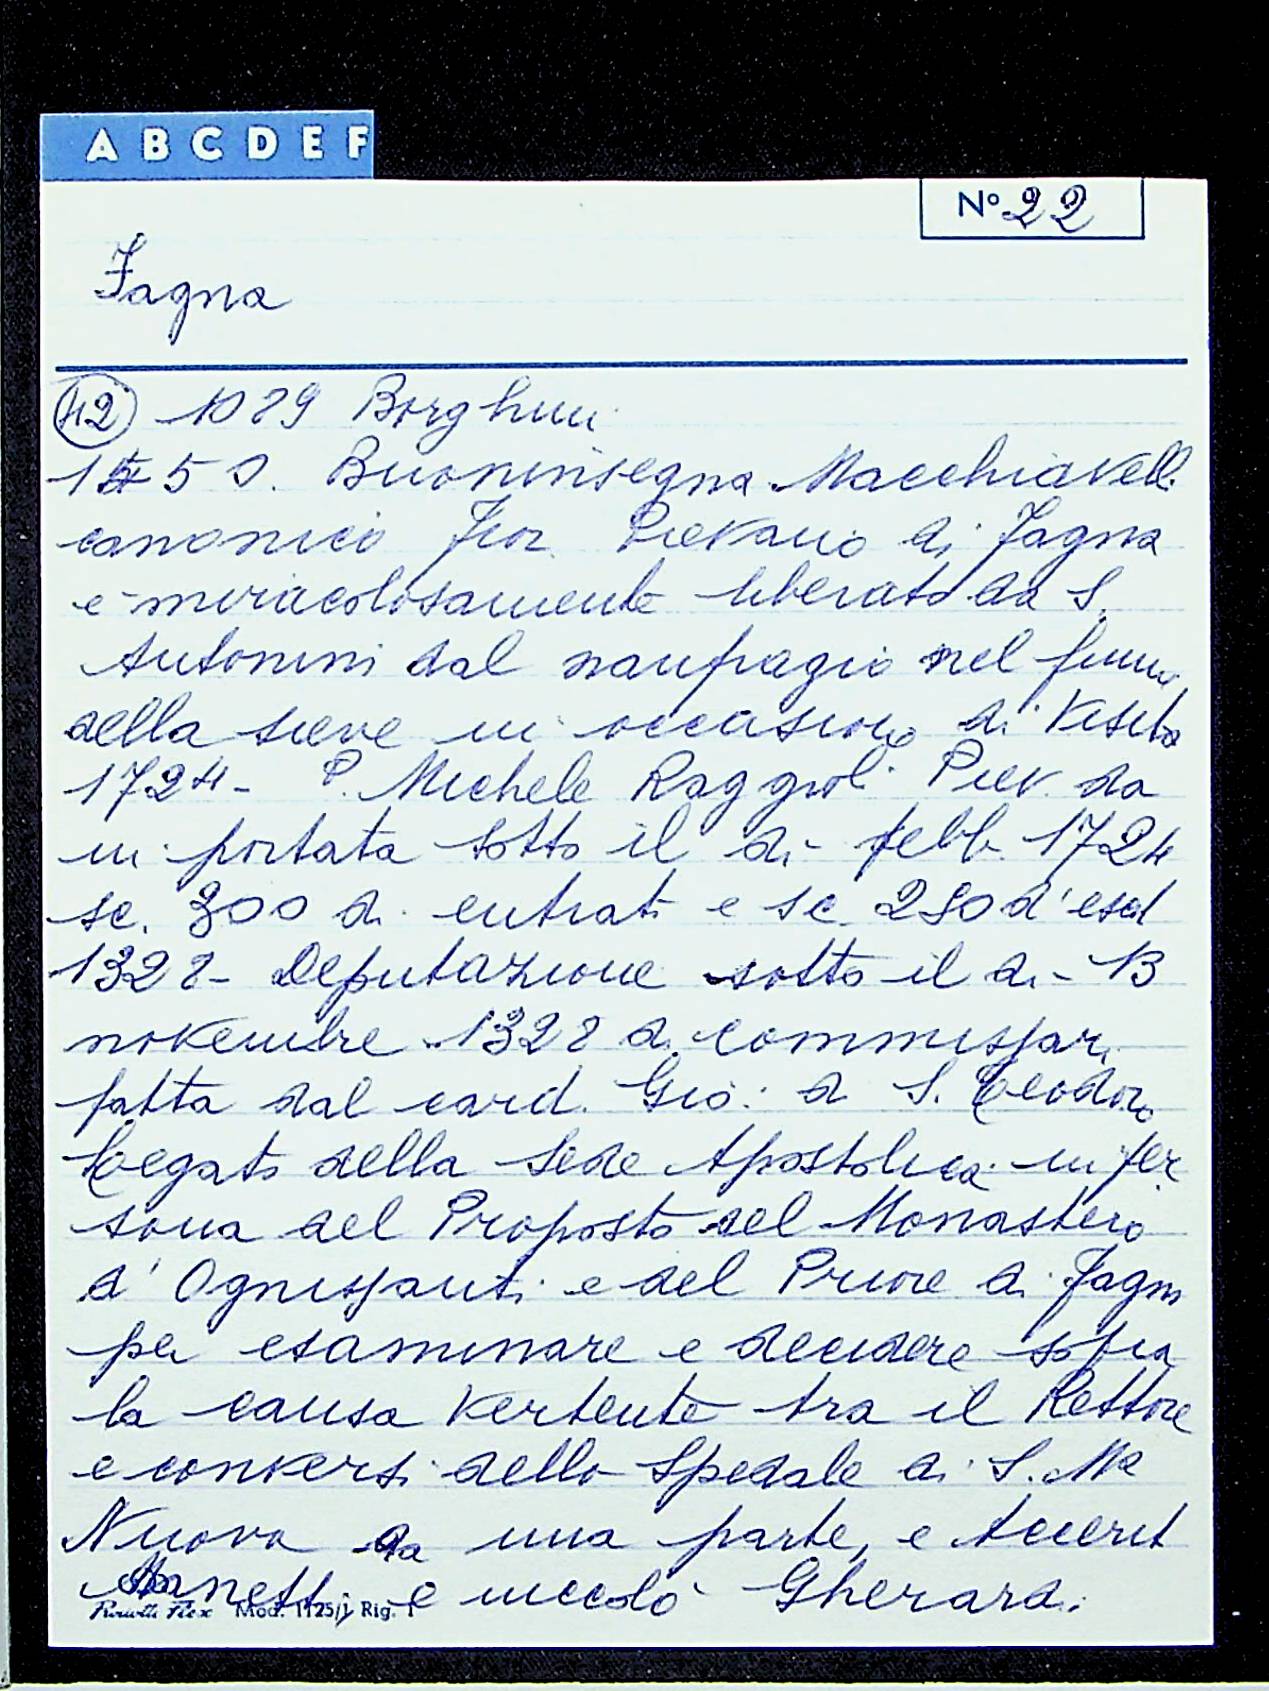 A B C D E F
Nº 22
Fagna
42 1089 Borghini
1450. Buoninsegna Macchiavelli
canonico Fior. Pievano di Fagna
e miracolosamente liberato da S.
Antonini dal naufragio nel fiume
della Sieve in occasione di visita
1724 - P. Michele Raggioli Piev. da
in portata sotto il di - febb. 1724
sc. 300 di entrati e sc. 280 d'
1328 - Deputazione sotto il di - 13
novembre 1328 di commissar.
fatta dal card. Gio: di S. Teodoro
Legato della Sede Apostolica in per
sona del Proposto del Monastero
d' Ognissanti e del Priore di Fagna
per esaminare e decidere sopra
la causa vertente tra il Rettore
e conversi dello Spedale di S. Ma
Nuova da una parte, e
e niccolò Gherardi
Mod. 1125/1 Rig. 1